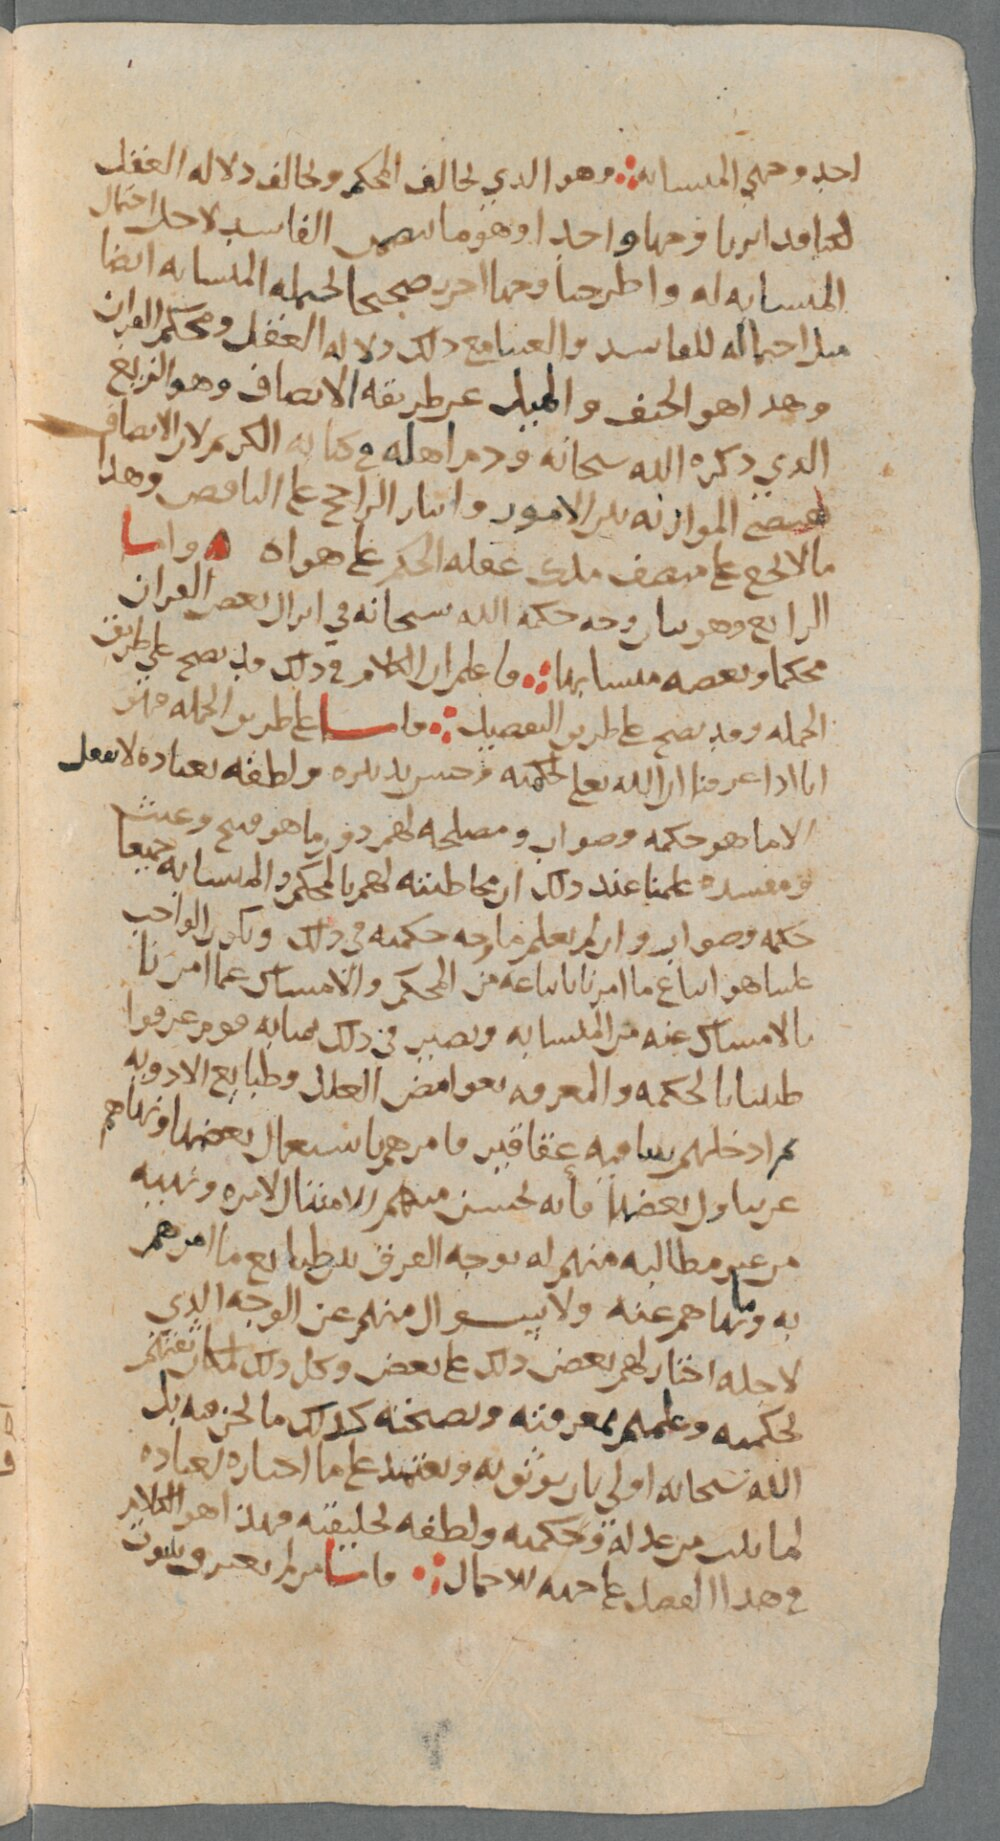 احد وجهي المتشابه ∴ وهو الذي يخالف المحكم ويخالف دلالة العقل
لكنا قد اثرنا وجها واحدا وهو ما الفاسد لاجل احتمال
المتشابه له واطرحنا وجها اخر صحيحا يحتمله المتشابه ايضا
مثل احتماله للفاسد والغينا مع ذلك دلاله العقل ومحكم القران
وهذا هو الحيف والميل عن طريقه الانصاف وهو الزيغ
الذي ذكره الله سبحانه وذم اهله في كتابه الكريم لان الانصاف
يقتضي الموازنه بين الامور وايثار الراجح على الناقص وهذا
ما لا يخفى على منصف ملك عقله الحكم على هواه ۞ واما
الرابع وهو بيان وجه حكمة الله سبحانه في انزال بعض القران
محكما وبعضه متشابها ∴ فاعلم ان الكلام في ذلك قد يصح على طريق
الجمله وقد يصح على طريق التفصيل ∴ فاما على طريق الجمله فهو
انا اذا عرفنا ان الله تعلى لحكمته وحسن تدبيره ولطفه بعباده لا يفعل
الا ما هو حكمه وصواب ومصلحه لهم دون ما هو قبيح وعبث
ومفسده علمنا عند ذلك ان مخاطبته لهم بالمحكم والمتشابه جميعا
حكمه وصواب وان لم نعلم ما وجه حكمته في ذلك ويكون الواجب
علينا هو اتباع ما امرنا باتباعه من المحكم والامساك عما امرنا
بالامساك عنه من المتشابه ونصير في ذلك بمثابه قوم عرفوا
طبيبا بالحكمه والمعرفه بغوامض العلل وطبايع الادويه
ثم ادخلهم بيتا فيه عقاقير فامرهم باستعمال بعضها ونهاهم
عن تناول بعضها فانه يحسن منهم الامتثال لامره ونهيه
من غير مطالبه منهم له بوجه الفرق بين طبايع ما امرهم
به وما نهاهم عنه ولا بسوال منهم عن الوجه الذي
لاجله اختار لهم بعض ذلك على بعض وكل ذلك لمكان ثقتهم
بحكمته وعلمهم بمعرفته ونصحته كذلك ما نحن فيه بل
الله سبحانه اولى بان يوثق به ويعتمد على ما اختاره لعباده
لما ثبت من عدله وحكمته ولطفه بخليقته فهذا هو الكلام
في هذا الفصل على جهه الاجمال ∴ فاما